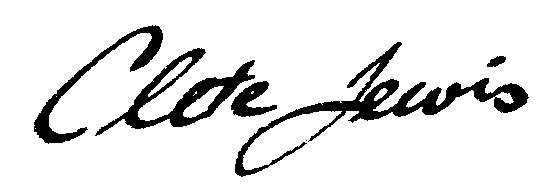 Clote Jewis